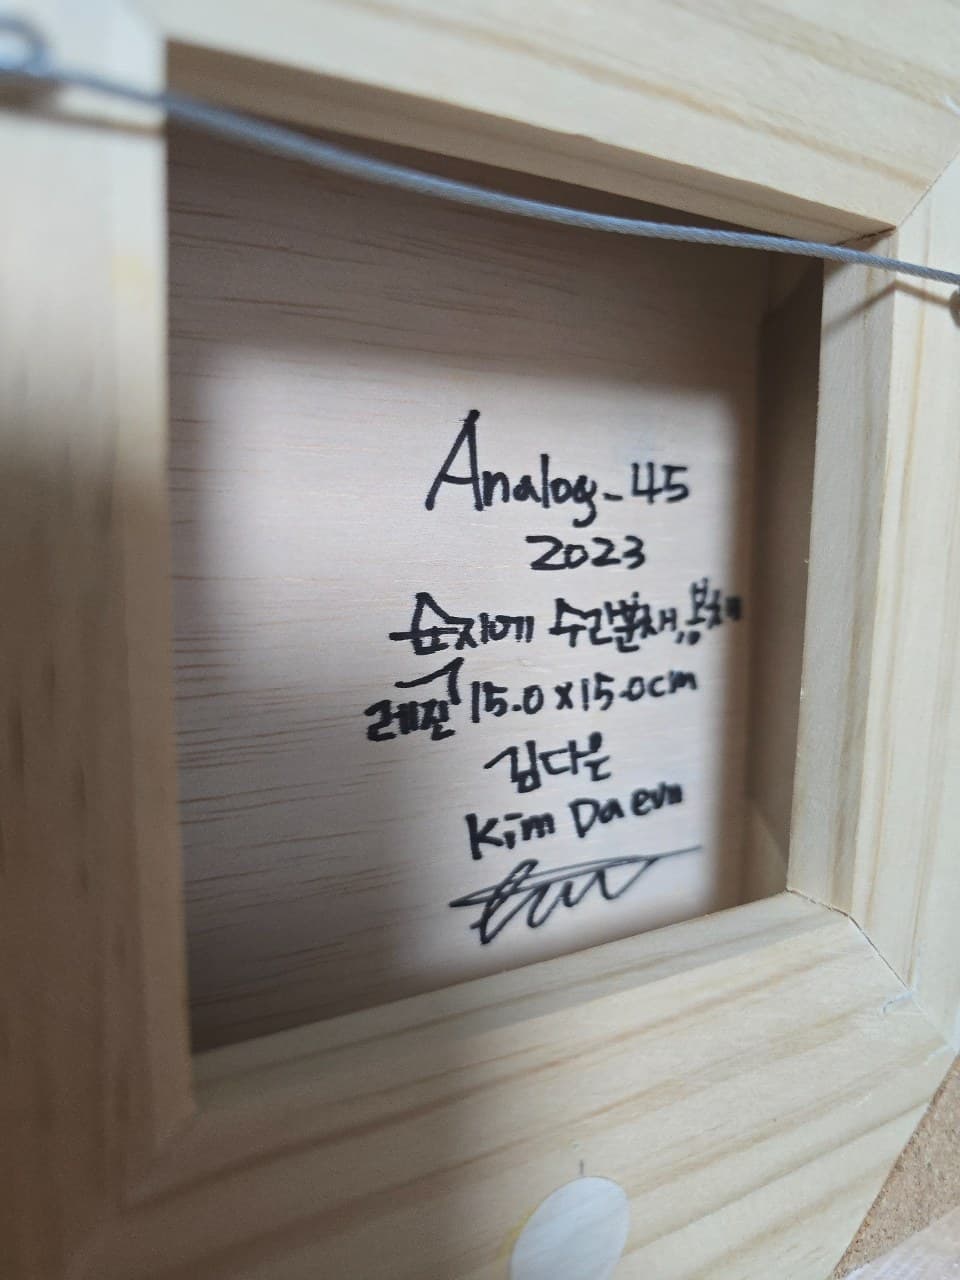 Analog-45
2023
순지에 수간분채, 봉채
레진 15.0 x 15.0cm
김다은
Kim Daeun